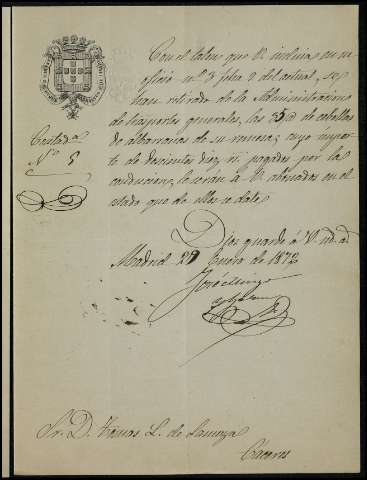 Con el talon que V. incluia en su
oficio nº 3 fcha 9 del actual, se
han retirado de la Administracion
de trasportes generales, las 5 de cebollas
de albarranas de su remesa; cuyo impor-
te de doscientos diez rs. pagados por la
conduccion, le serán á V. abonados en el
estado que de ellos se date.
Contad.ª
Nº 5
Dios guarde á V. m.s a.s
Madrid 27 Enero de 1872
José
Sr. D. Tomas L. de
Cáceres